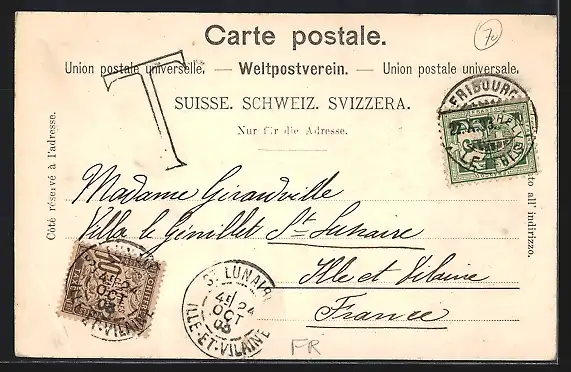 Carte postale.
Union postale universelle. — Weltpostverein. — Union postale universale.
SUISSE. SCHWEIZ. SVIZZERA.
Nur für die Adresse.
Côté réservé à l'adresse.
all' indirizzo.
T
FRIBOURG
HELVETIA
Madame Girandville
Villa le Génillet St Lunaire
Ille et Vilaine
France
10
ILLE-ET-VILAINE
St LUNAIRE
4E/24
OCT
03
ILLE-ET-VILAINE
FR